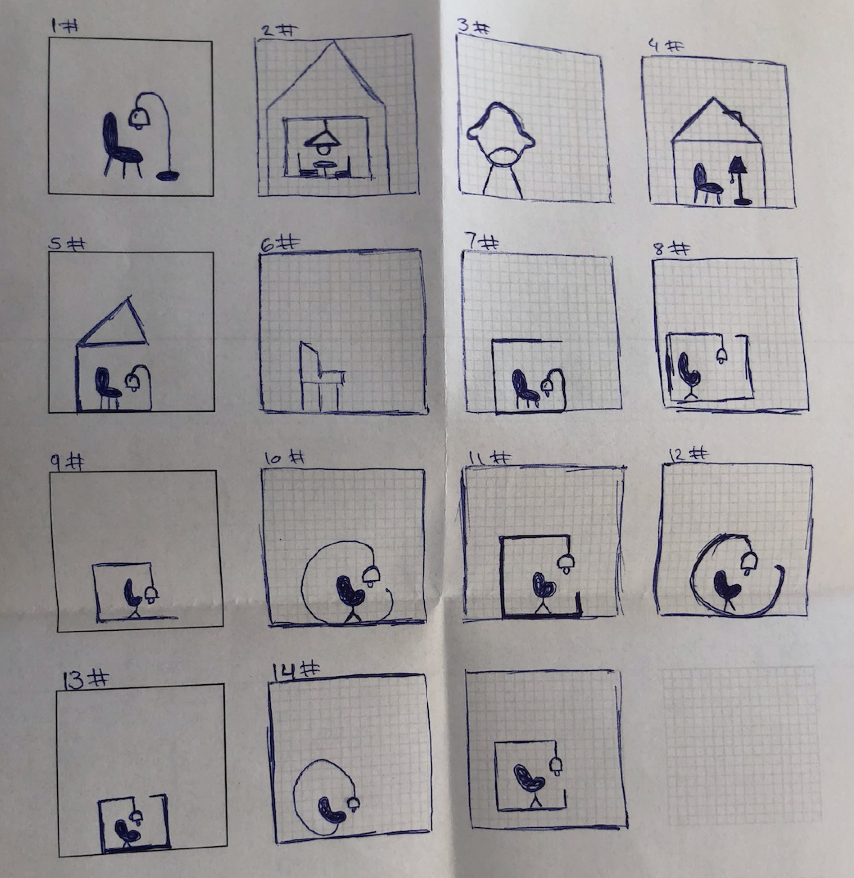 1#
2#
3#
4#
5#
6#
7#
8#
9#
10#
11#
12#
13#
14#